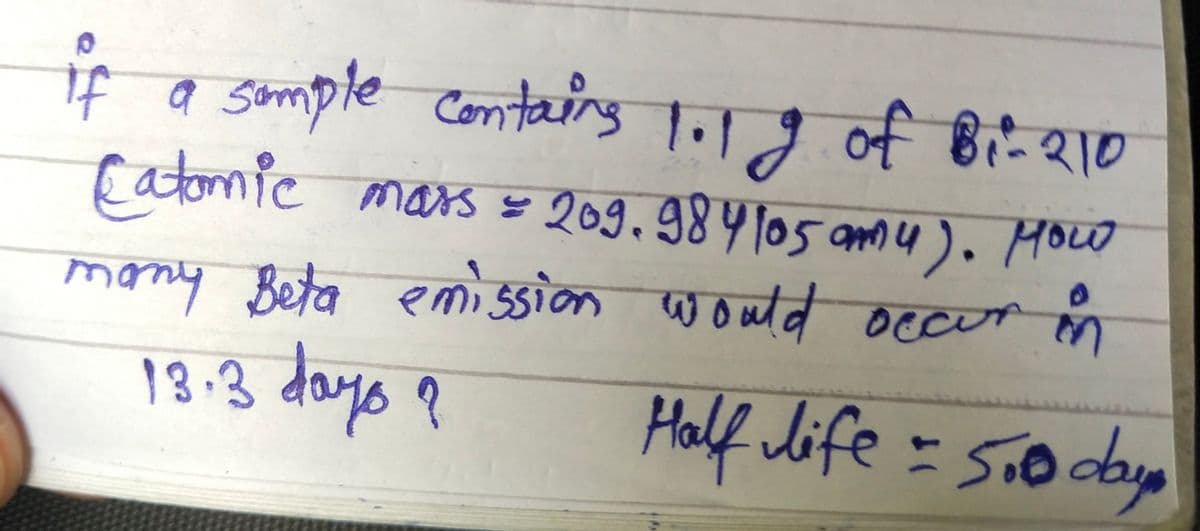 if a sample contains 1.1 g of Bi-210
(atomic mass = 209.984105 amu). How
many Beta emission would occur in
13.3 days ?
Half life = 5.0 days